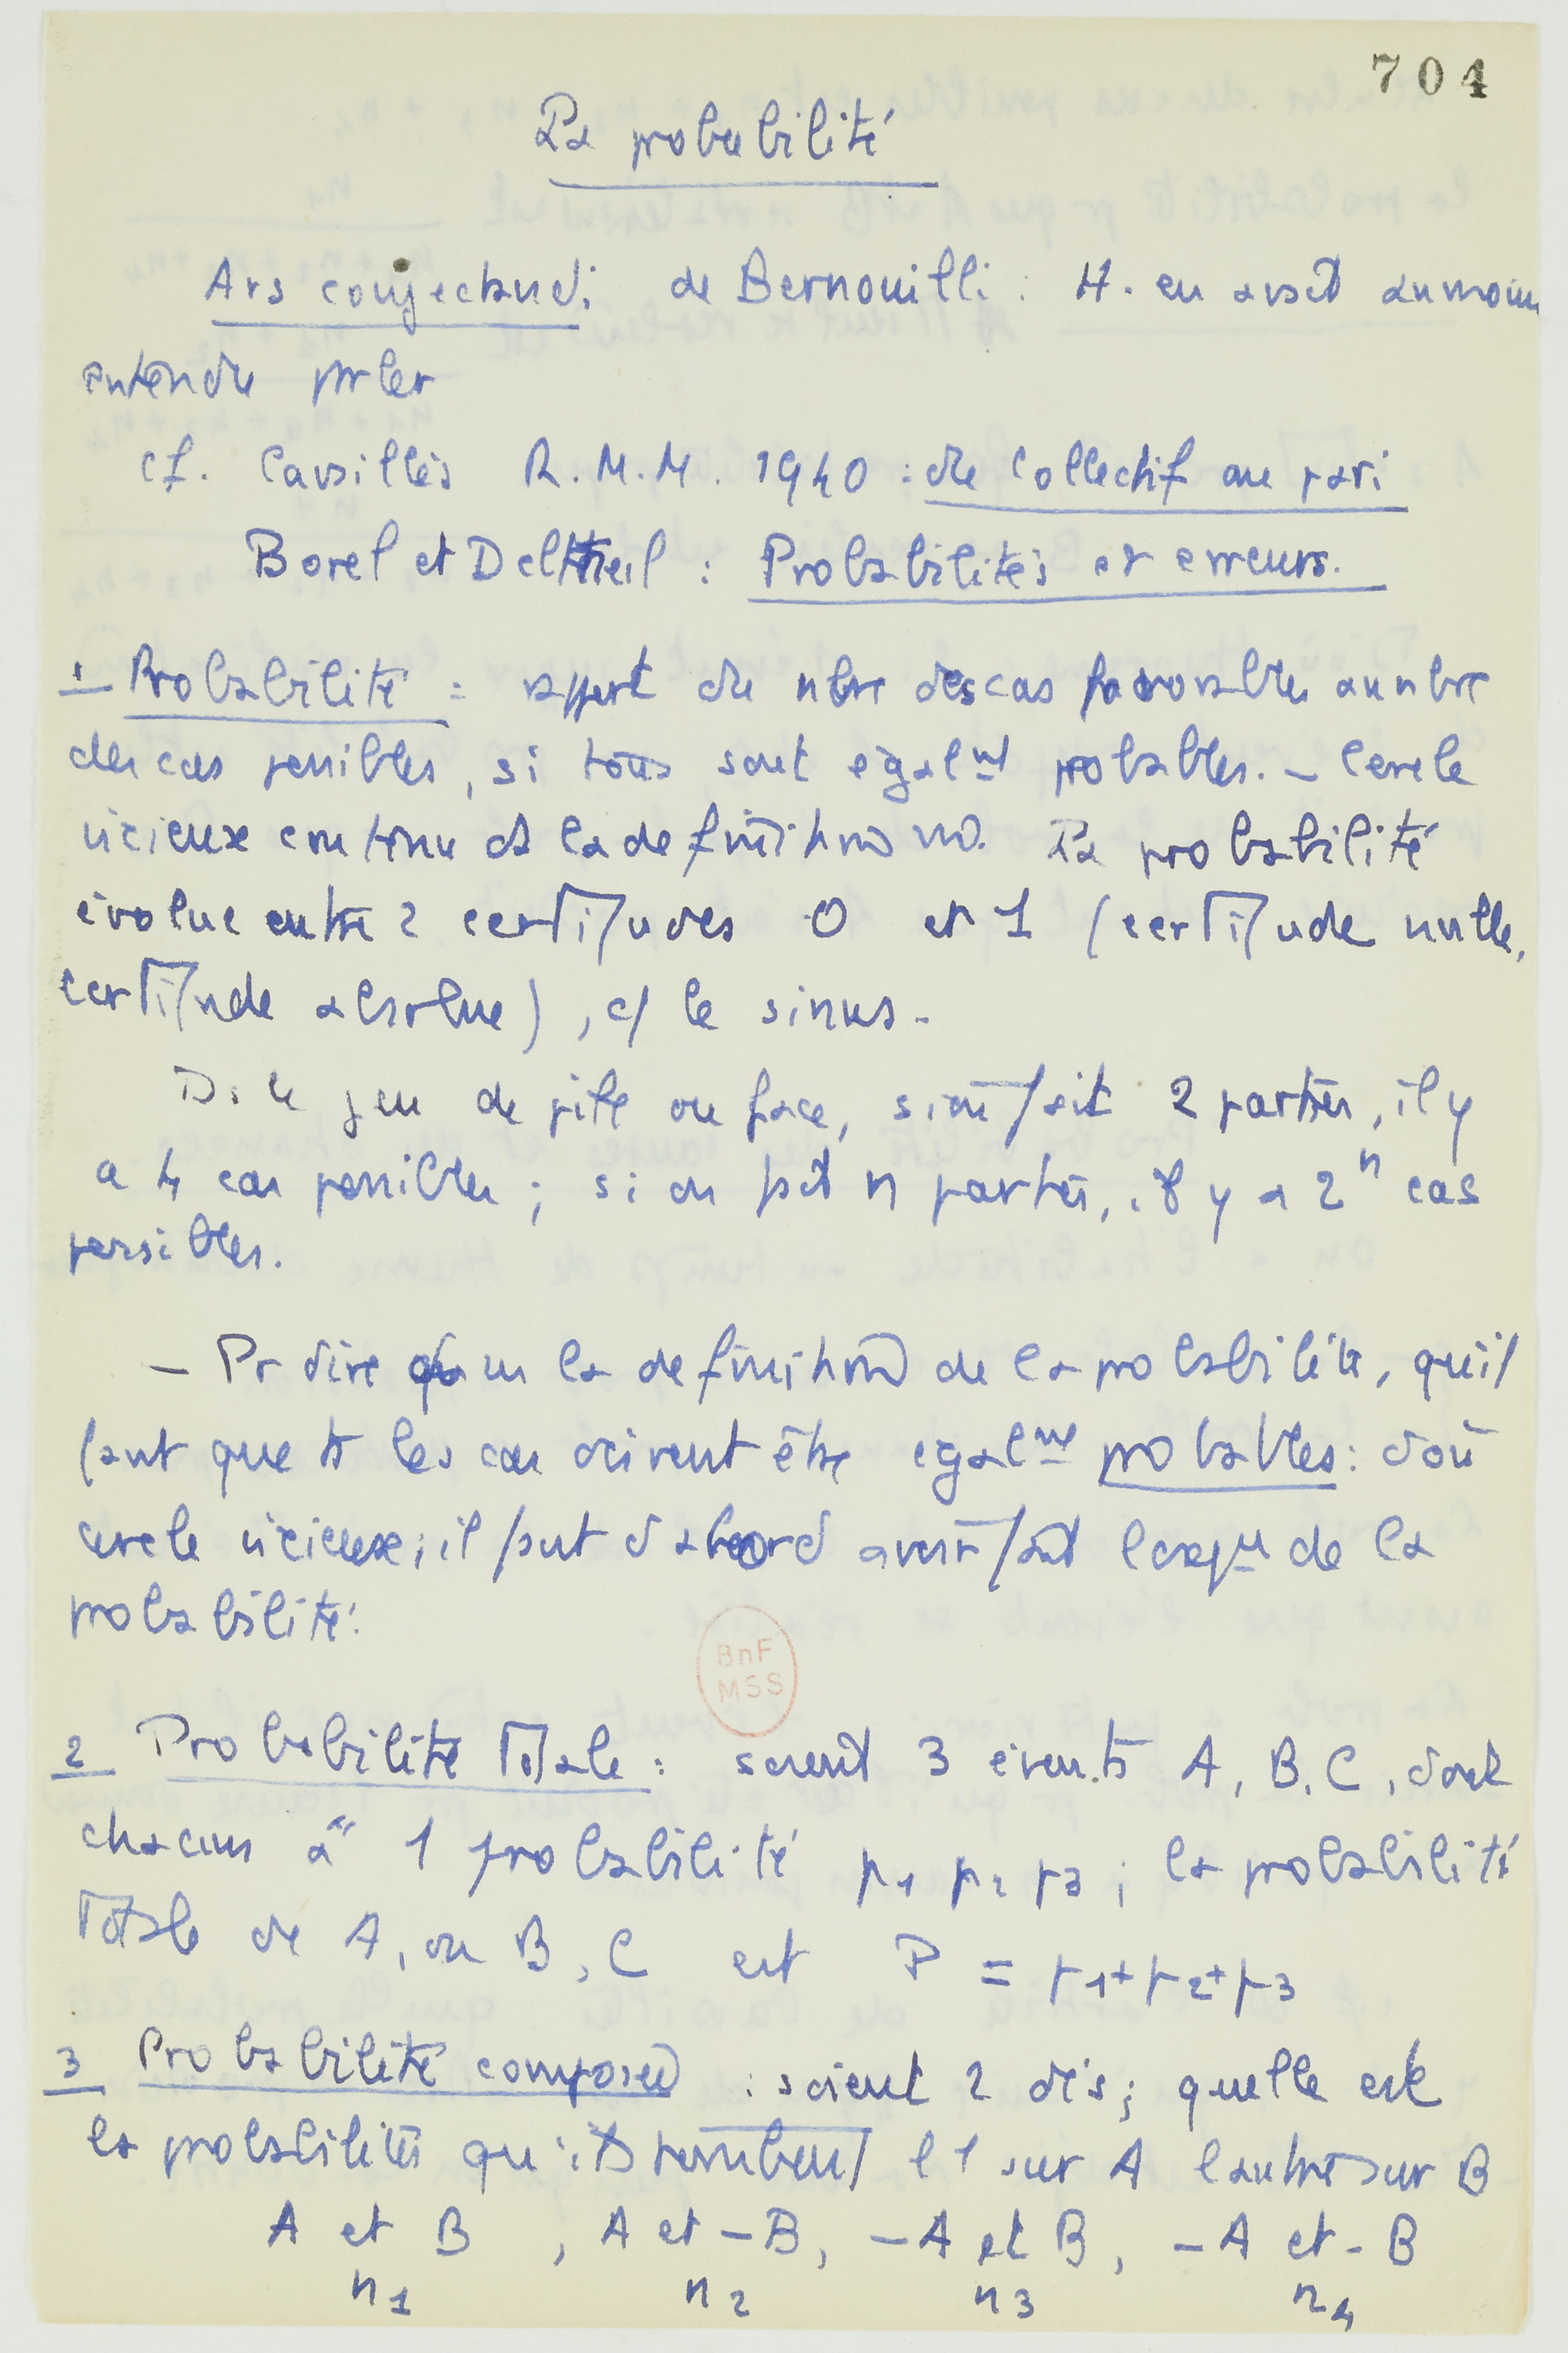 704
La probabilité
Ars conjectandi de Bernouilli : H. en avait au moins
entendu parler
cf. Cavaillès R.M.M. 1940 : du Collectif au pari
Borel et Deltheil : Probabilités et erreurs.
1 Probabilité = rapport du nbre des cas favorables au nbre
des cas possibles, si tous sont égalmt probables. – Cercle
vicieux contenu ds la definition La probabilité
évolue entre 2 certitudes 0 et 1 (certitude nulle,
certitude absolue), c/ le sinus.
Ds le jeu de pile ou face, si on fait 2 parties, il y
a 4 cas possibles ; si on fait n parties, il y a 2ⁿ cas
possibles.
– Pr dire la definition de la probabilité, qu'il
faut que ts les cas doivent être egalmt probables : d'où
cercle vicieux ; il faut d'abord avoir fait de la
probabilité.
2 Probabilité Totale : soient 3 évents A, B, C, dont
chacun a 1 probabilité p1 p2 p3 ; la probabilité
Totale de A, ou B, C est P = p1 + p2 + p3
3 Probabilité composée : soient 2 dés ; quelle est
la probabilité qu'ils tombent l'1 sur A l'autre sur B
A et B , A et – B, – A et B, – A et – B
n1 n2 n3 n4
BnF
MSS